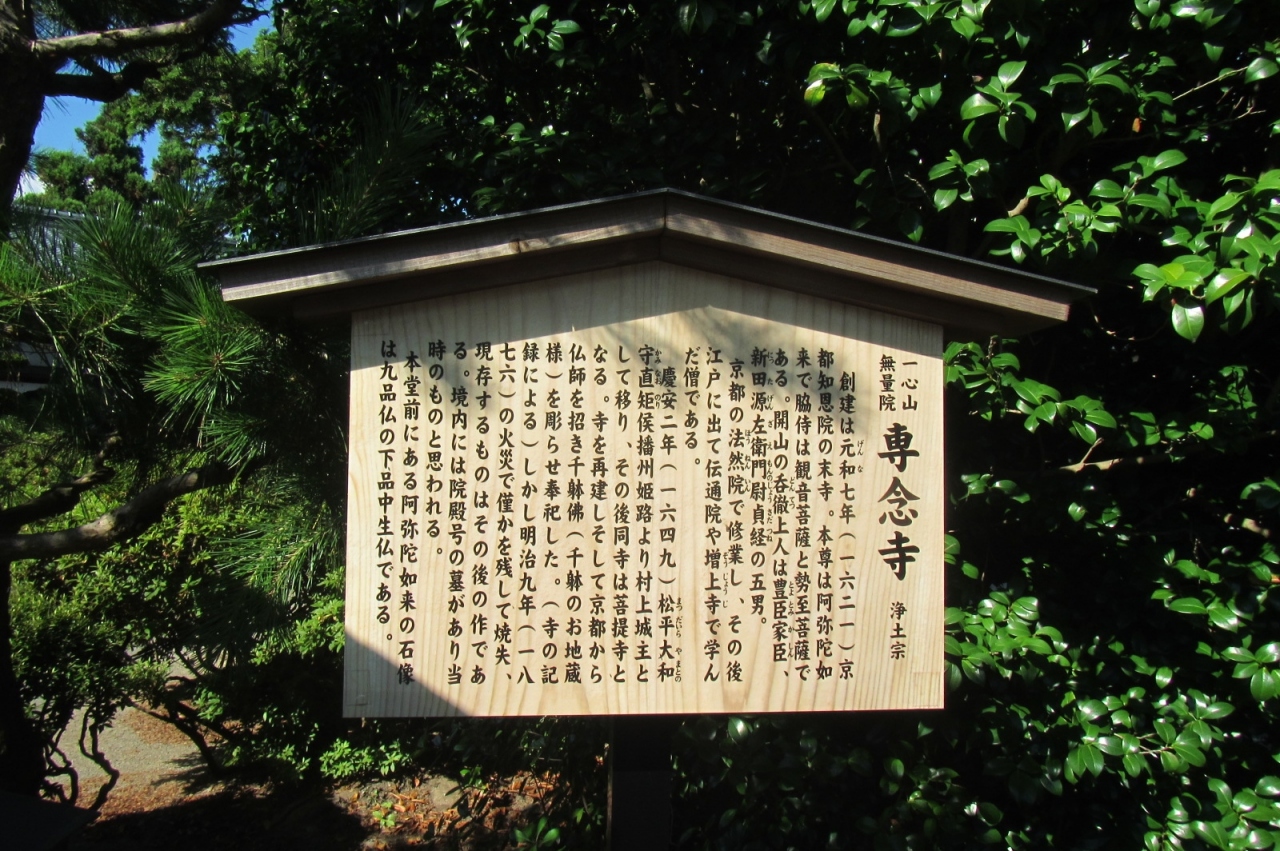 一心山
無量院
専念寺 浄土宗
創建は元和七年（一六二一）京
都知恩院の末寺。本尊は阿弥陀如
来で脇侍は観音菩薩と勢至菩薩で
ある。開山の呑徹上人は豊臣家臣、
新田源左衛門尉貞経の五男。
京都の法然院で修業し、その後
江戸に出て伝通院や増上寺で学ん
だ僧である。
慶安二年（一六四九）松平大和
守直矩侯播州姫路より村上城主と
して移り、その後同寺は菩提寺と
なる。寺を再建しそして京都から
仏師を招き千躰佛（千躰のお地蔵
様）を彫らせ奉祀した。（寺の記
録による）しかし明治九年（一八
七六）の火災で僅かを残して焼失、
現存するものはその後の作であ
る。境内には院殿号の墓があり当
時のものと思われる。
本堂前にある阿弥陀如来の石像
は九品仏の下品中生仏である。